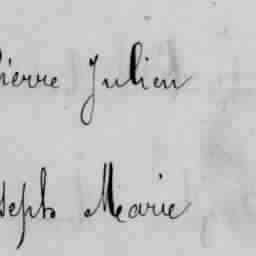 Pierre Julien
Joseph Marie